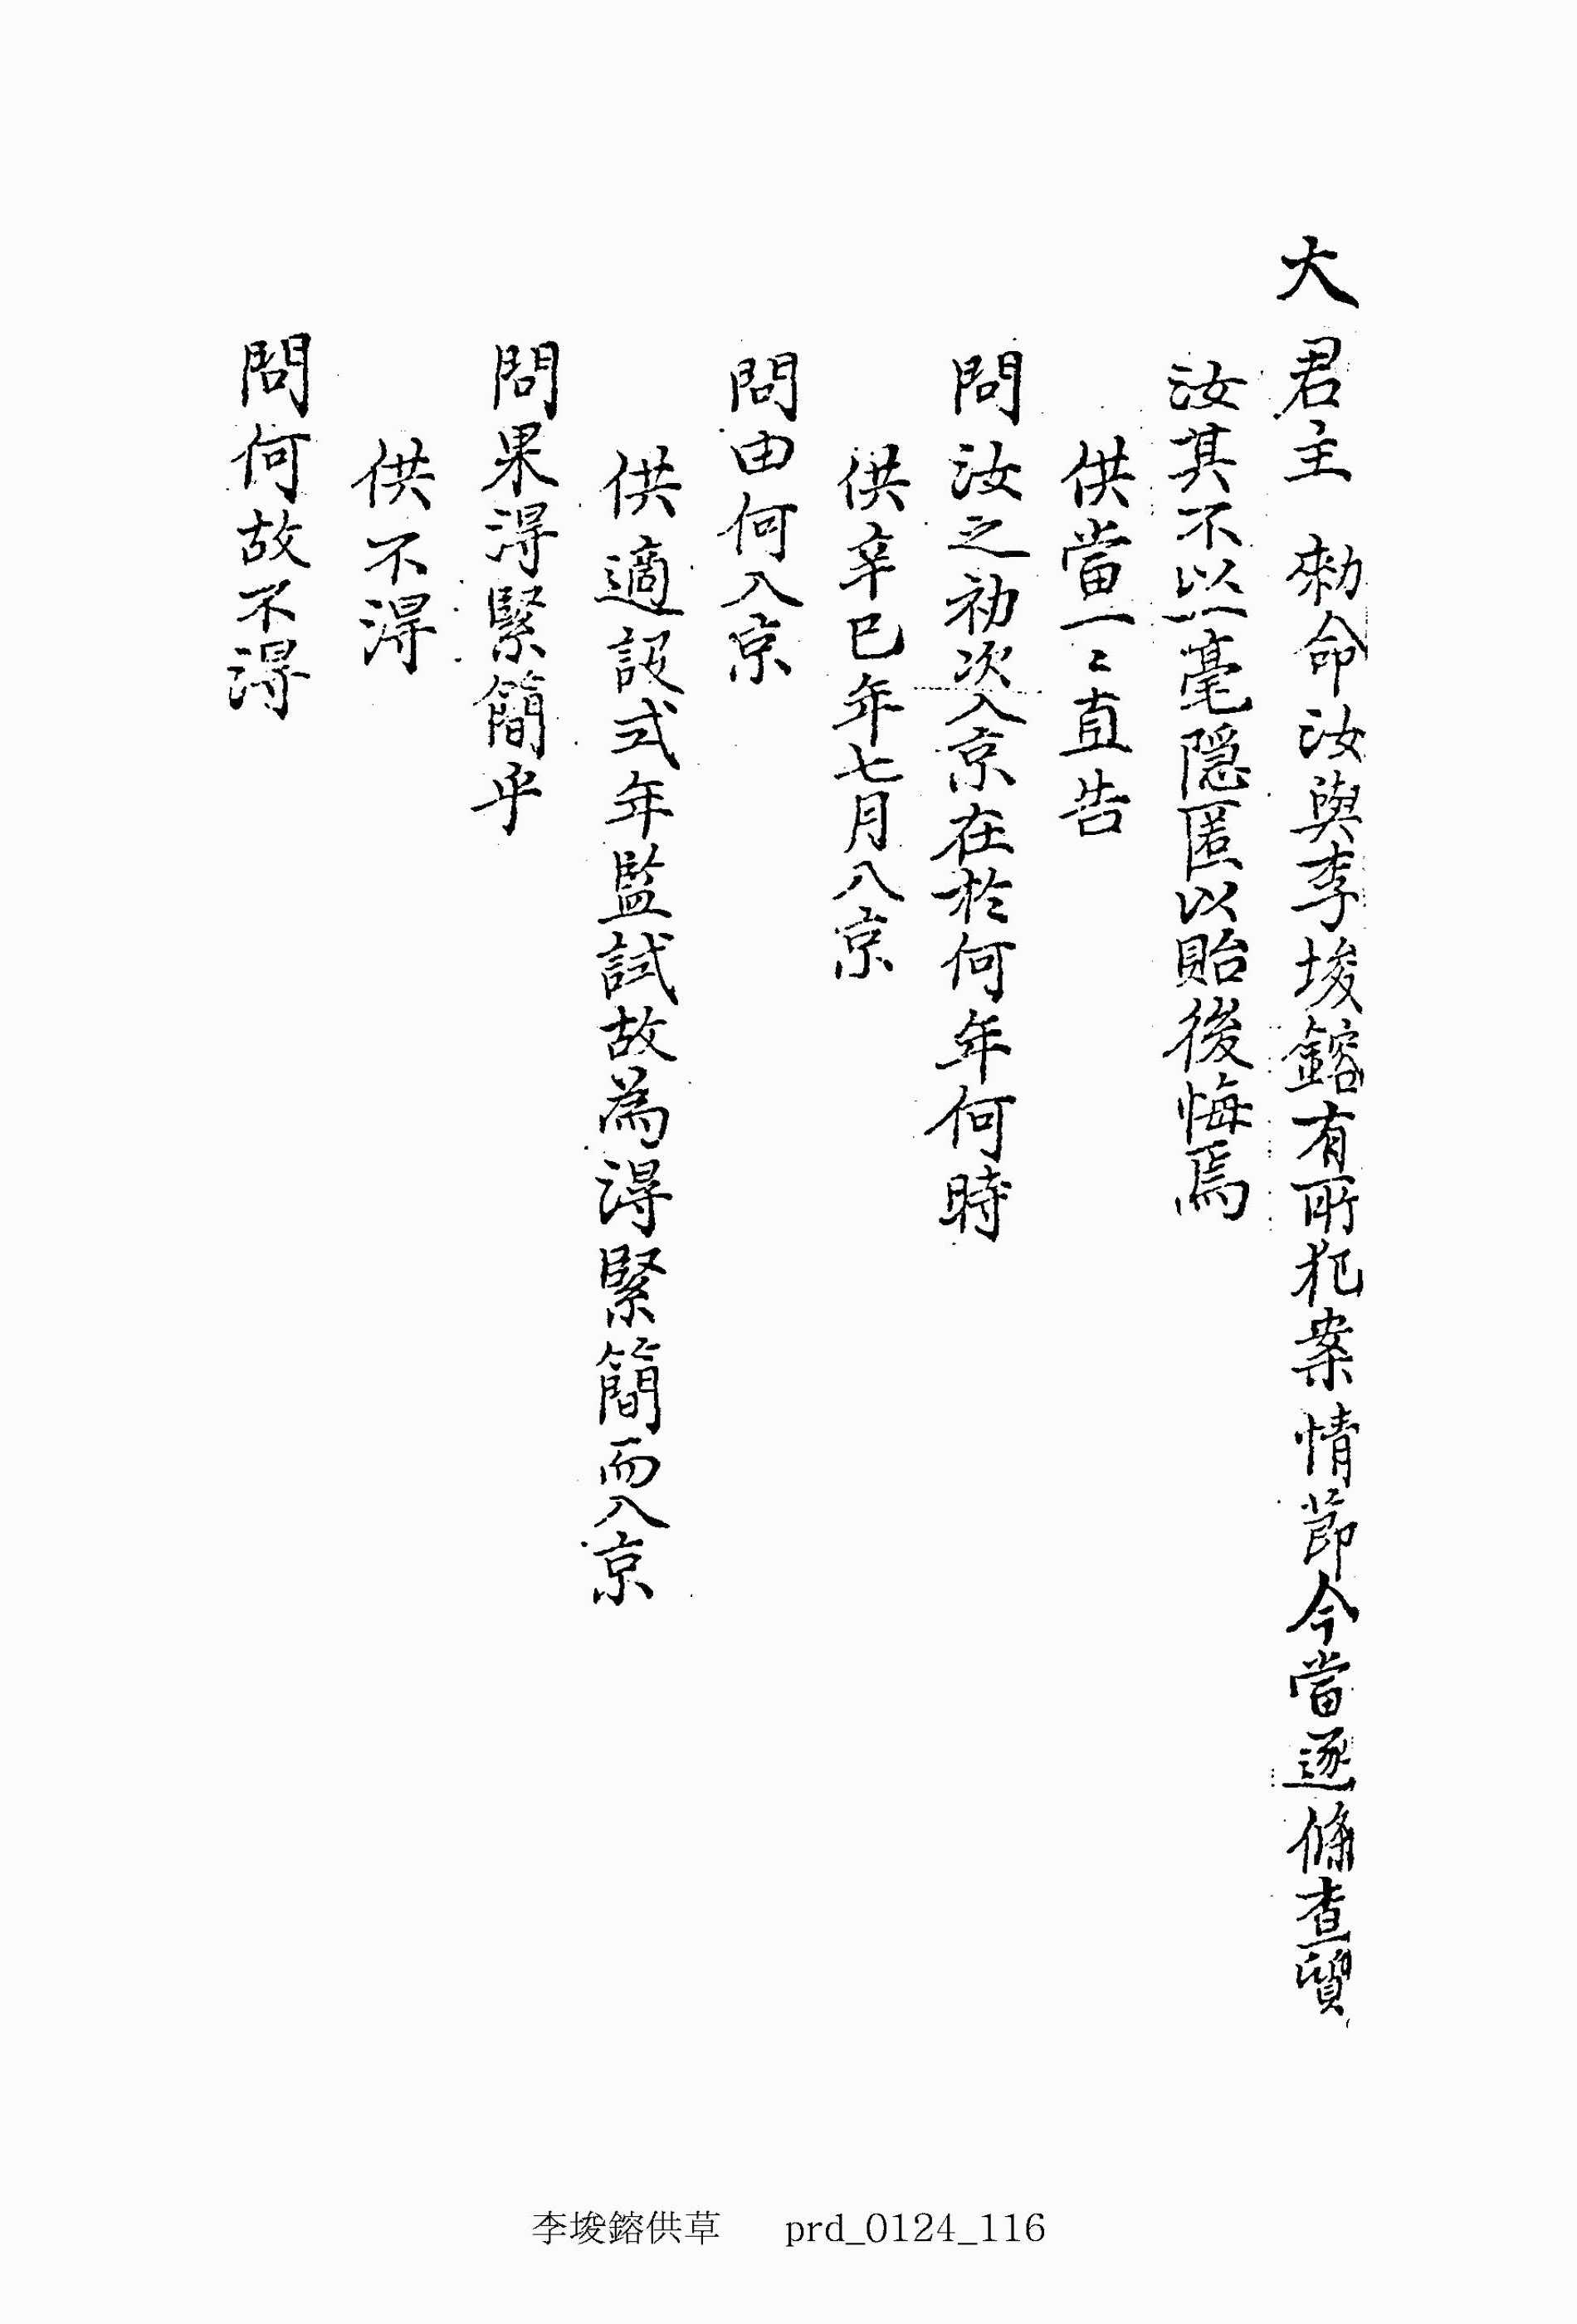 大君主 勅命汝與李埈鎔有所犯案情節今當逐條查質
汝其不以一毫隱匿以貽後悔焉
供當一〻直告
問汝之初次入京在於何年何時
供辛巳年七月入京
問由何入京
供適設式年監試故為得緊簡而入京
問果得緊簡乎
供不得
問何故不得
李埈鎔供草 prd_0124_116